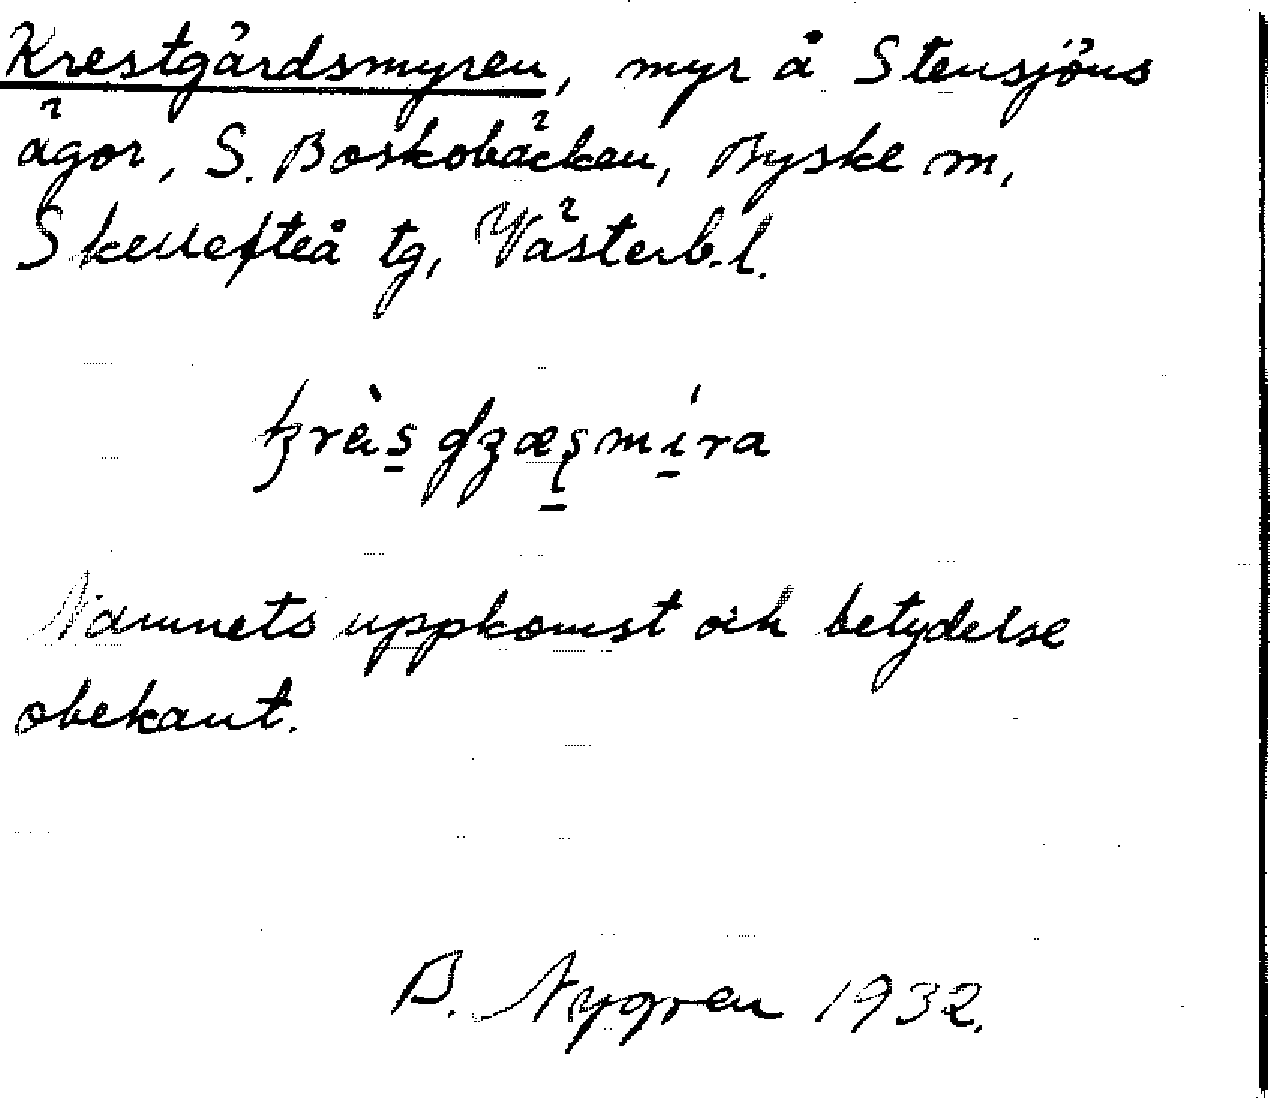 Krestgårdsmyren, myr å Stensjöns
ägor, S. Boskobäcken, Byske m,
Skellefteå tg, Västerb. l.
Namnets uppkomst och betydelse
obekant.
B. Nygren 1932.